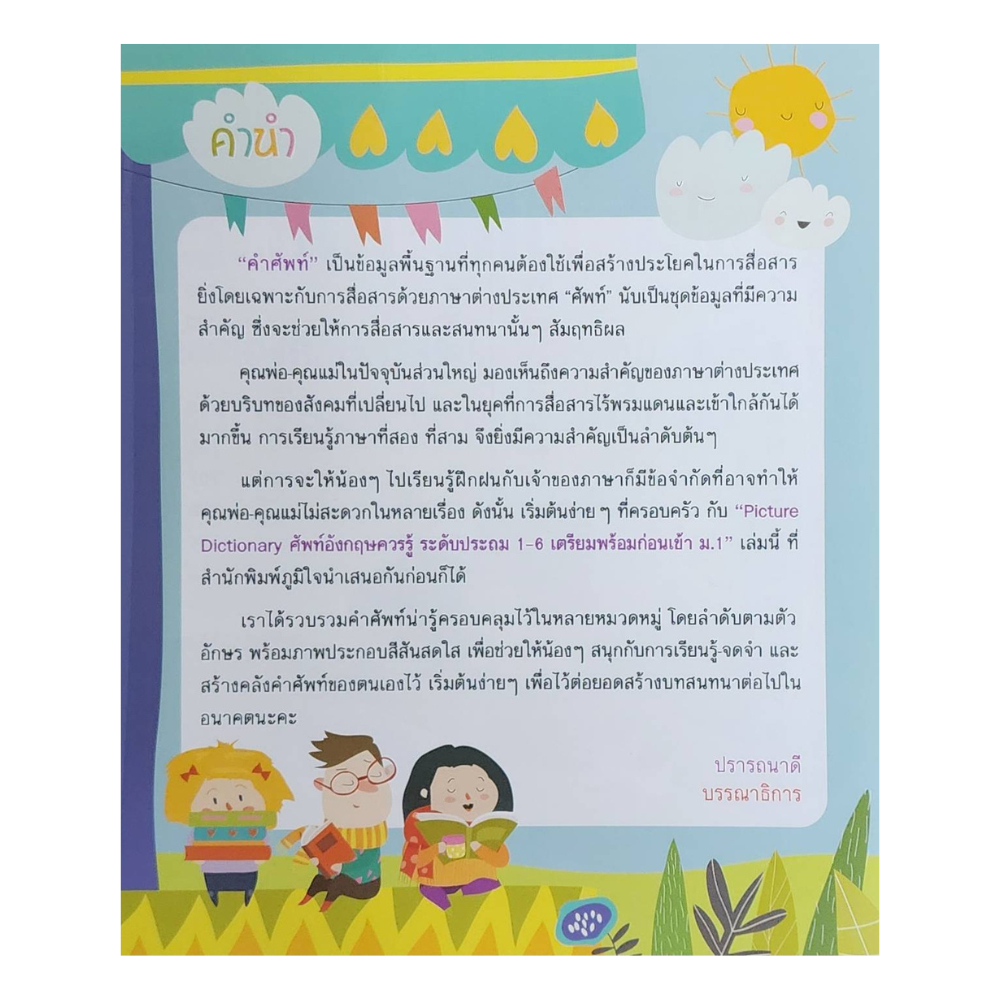 คำนำ
“คำศัพท์” เป็นข้อมูลพื้นฐานที่ทุกคนต้องใช้เพื่อสร้างประโยคในการสื่อสาร
ยิ่งโดยเฉพาะกับการสื่อสารด้วยภาษาต่างประเทศ “ศัพท์” นับเป็นชุดข้อมูลที่มีความ
สำคัญ ซึ่งจะช่วยให้การสื่อสารและสนทนานั้นๆ สัมฤทธิผล
คุณพ่อ-คุณแม่ในปัจจุบันส่วนใหญ่ มองเห็นถึงความสำคัญของภาษาต่างประเทศ
ด้วยบริบทของสังคมที่เปลี่ยนไป และในยุคที่การสื่อสารไร้พรมแดนและเข้าใกล้กันได้
มากขึ้น การเรียนรู้ภาษาที่สอง ที่สาม จึงยิ่งมีความสำคัญเป็นลำดับต้นๆ
แต่การจะให้น้องๆ ไปเรียนรู้ฝึกฝนกับเจ้าของภาษาก็มีข้อจำกัดที่อาจทำให้
คุณพ่อ-คุณแม่ไม่สะดวกในหลายเรื่อง ดังนั้น เริ่มต้นง่าย ๆ ที่ครอบครัว กับ “Picture
Dictionary ศัพท์อังกฤษควรรู้ ระดับประถม 1-6 เตรียมพร้อมก่อนเข้า ม.1” เล่มนี้ ที่
สำนักพิมพ์ภูมิใจนำเสนอกันก่อนก็ได้
เราได้รวบรวมคำศัพท์น่ารู้ครอบคลุมไว้ในหลายหมวดหมู่ โดยลำดับตามตัว
อักษร พร้อมภาพประกอบสีสันสดใส เพื่อช่วยให้น้องๆ สนุกกับการเรียนรู้-จดจำ และ
สร้างคลังคำศัพท์ของตนเองไว้ เริ่มต้นง่ายๆ เพื่อไว้ต่อยอดสร้างบทสนทนาต่อไปใน
อนาคตนะคะ
ปรารถนาดี
บรรณาธิการ